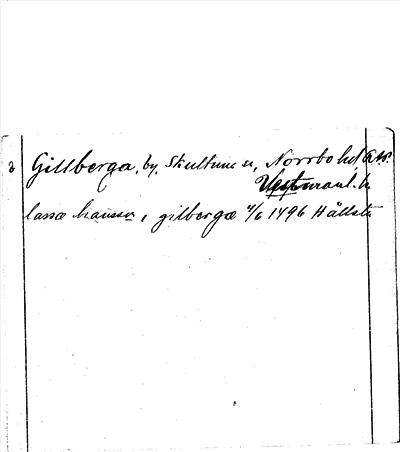 Gillberga, by, Skultuna sn, Norrbo hd
Vestmanl. l.
lasse hansson i gilberga 4/6 1496 Hállsta